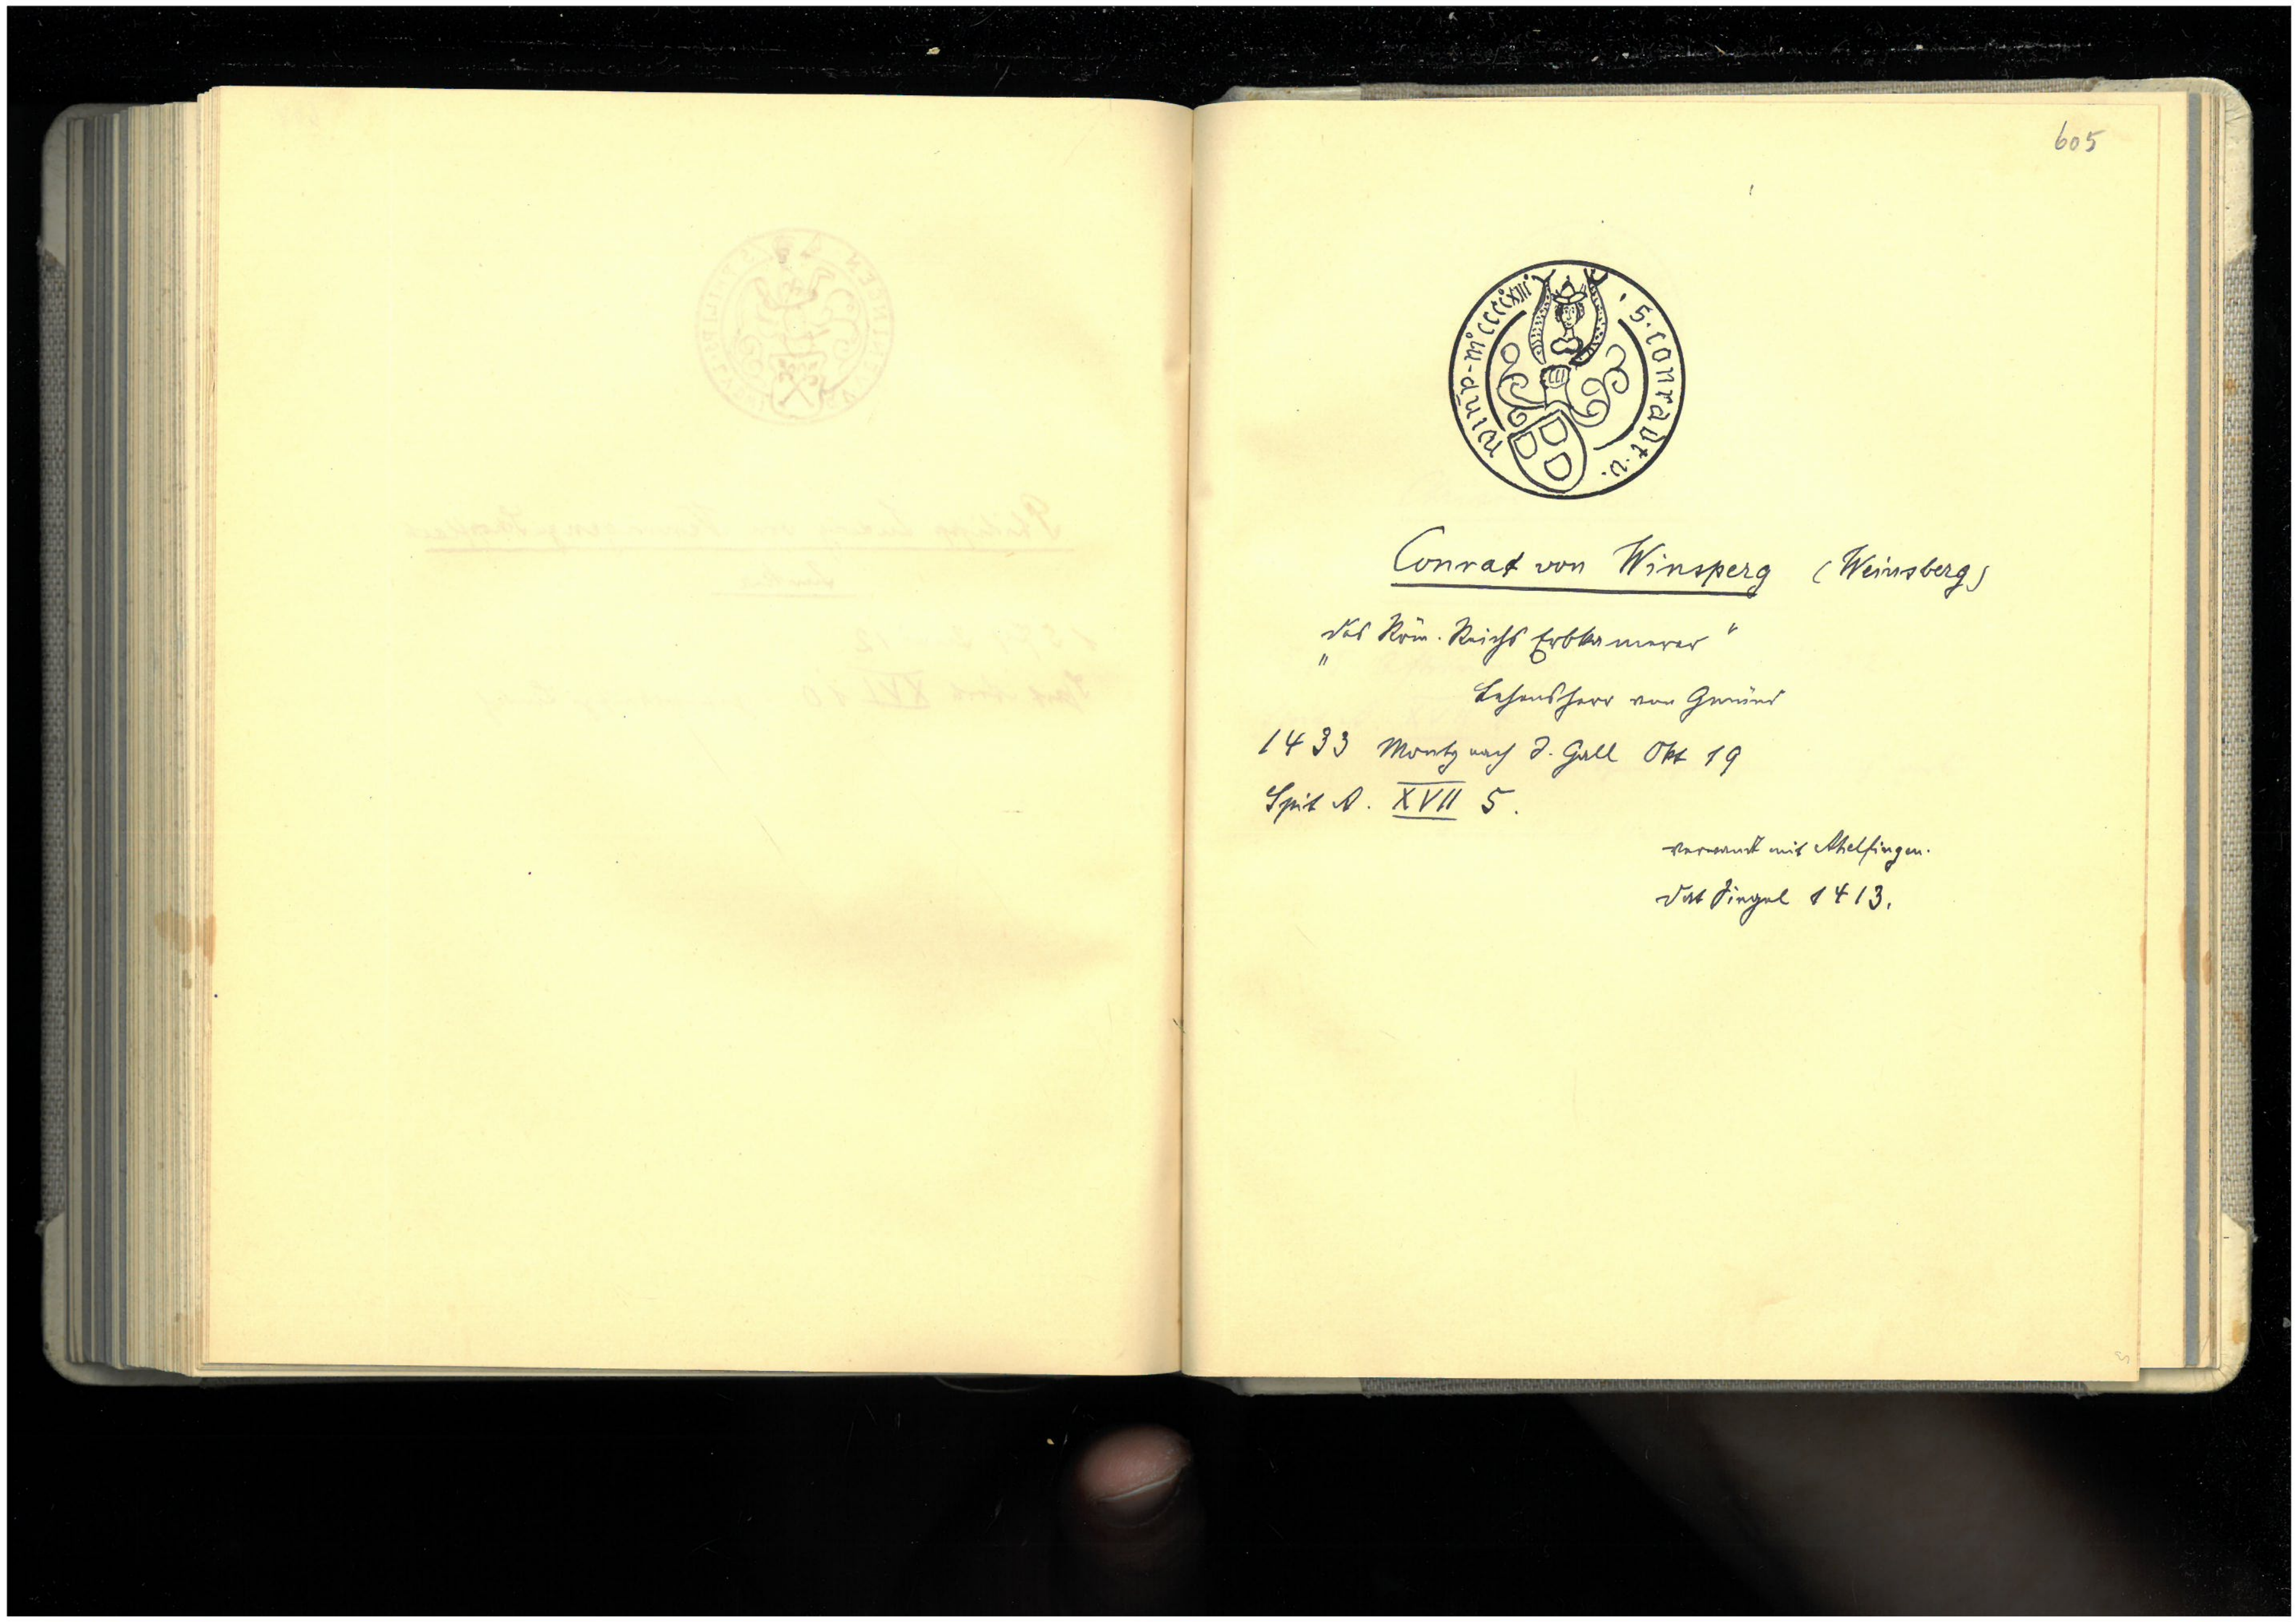 605
· s · conradt · v · winsp - mº ccccxiii
Conrad von Winsperg (Weinsberg)
„des Röm. Reichs Erbkamerer“
Lehensherr von Gmünd
1433 Montg nach S. Gall Okt 19
Spit A. XVII 5.
verwandt mit Ahelfingen.
dat Siegel 1413.